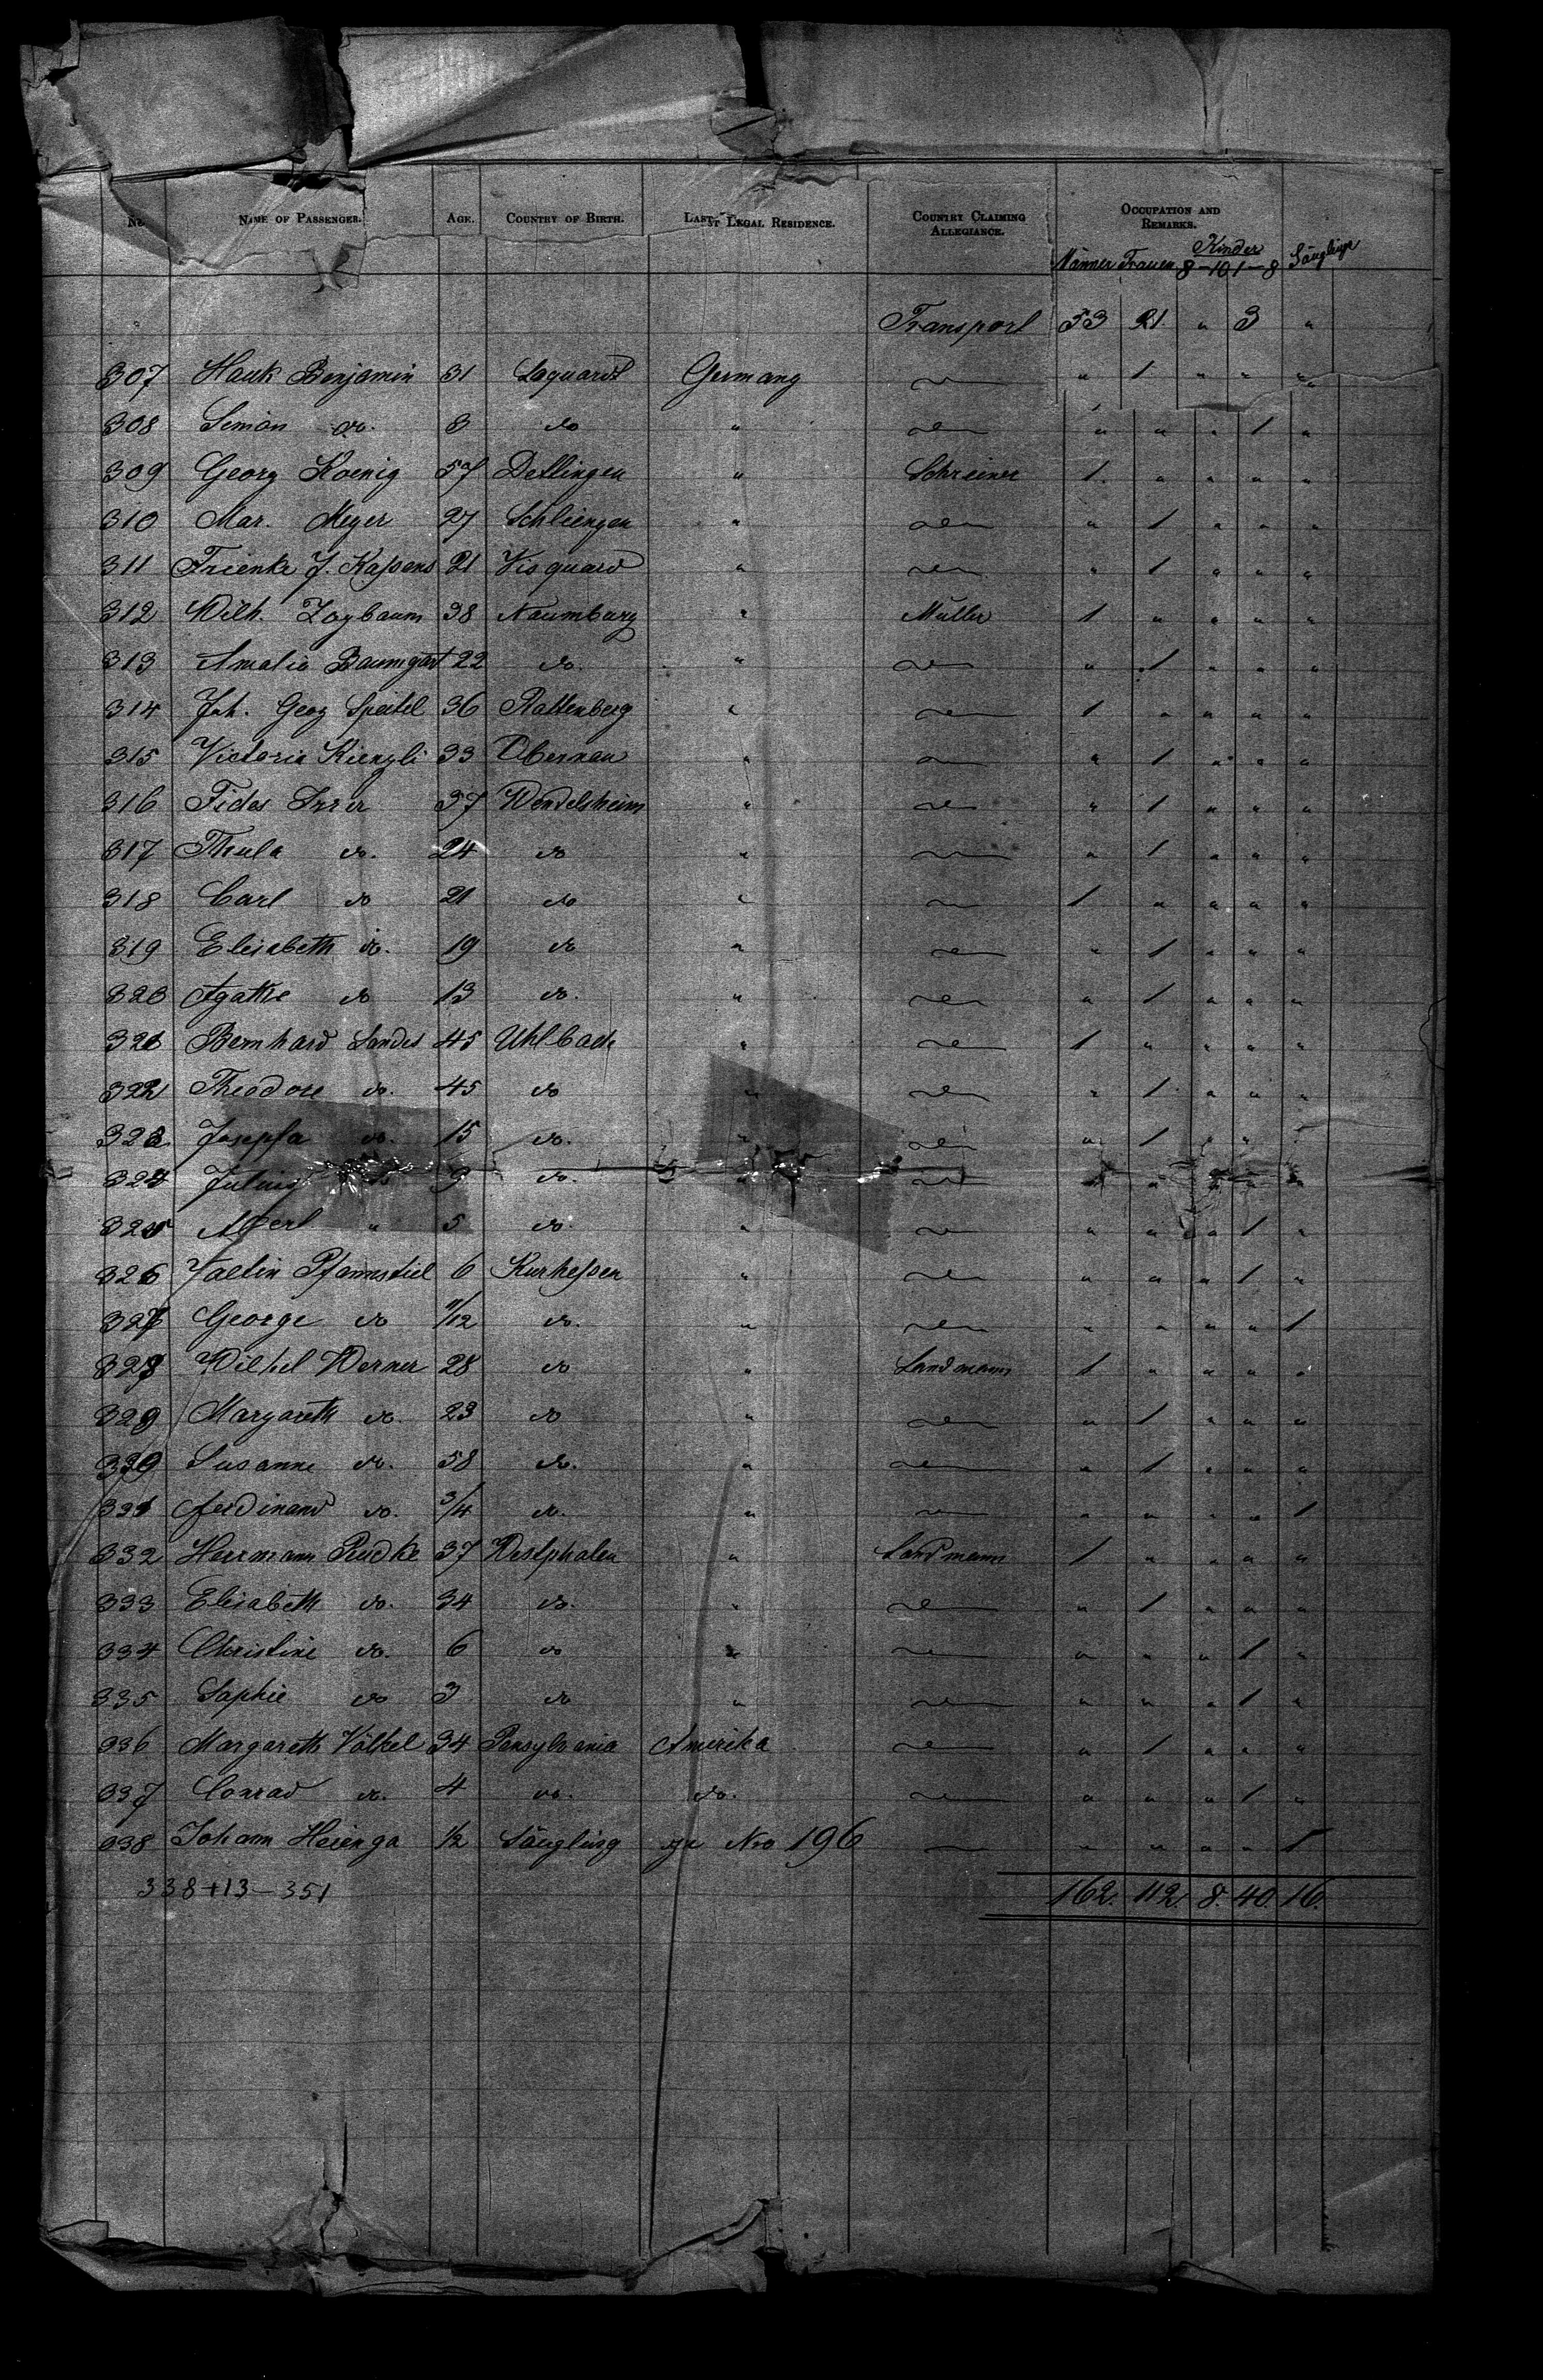 No. NAME OF PASSENGER. AGE. COUNTRY OF BIRTH. LAST LEGAL RESIDENCE. COUNTRY CLAIMING ALLEGIANCE. OCCUPATION AND REMARKS.
Männer Frauen Kinder 8-10 1-8 Säuglinge
Transport 53 21 " 3 "
307 Hauk Benjamin 31 Loquard Germany " 1 " " "
308 Simon do. 8 do " " " " 1 "
309 Georg Koenig 57 Dettingen " Schreiner 1 " " " "
310 Mar. Meyer 27 Schliengen " " 1 " " "
311 Frienke J. Kaßens 21 Visquard " " 1 " " "
312 Wilh. Zoybaum 38 Naumburg " Müller 1 " " " "
313 Amalia Baumgart 22 do. " " 1 " " "
314 Joh. Georg Speitel 36 Rattenberg " 1 " " " "
315 Victoria Kienzli 33 Obernau " " 1 " " "
316 Fides Irrer 37 Wendelsheim " " 1 " " "
317 Thula do. 24 do " " 1 " " "
318 Carl do 21 do " 1 " " " "
319 Elisabeth do. 19 do " " 1 " " "
320 Agathe do 13 do. " " 1 " " "
321 Bernhard Landes 45 Uhlbach " 1 " " " "
322 Theodore do. 45 do " " 1 " " "
323 Josepfa do. 15 do. " " 1 " " "
324 Julius do 9 do. " " "
325 Albert " 5 do. " " " " 1 "
326 Valtin Pfannstiel 6 Kurheßen " " " " 1 "
327 George do 11/12 do. " " " " " 1
328 Wilhel Werner 28 do " Landmann 1 " " " "
329 Margareth do. 23 do " " 1 " " "
330 Susanne do. 58 do. " " 1 " " "
331 Ferdinand do. 3/4 do. " " " " " 1
332 Herrmann Rudke 37 Westphalen " Landmann 1 " " " "
333 Elisabeth do. 34 do. " " 1 " " "
334 Christine do. 6 do " " " " 1 "
335 Sophie do 3 do " " " " 1 "
336 Margareth Völkel 34 Pensylvania Amerika " 1 " " "
337 Conrad do. 4 do. do. " " " 1 "
338 Johann Heienga 1/2 Säugling zu Nro 196 " " " " 1
338+13-351 162. 112. 8. 40. 16.